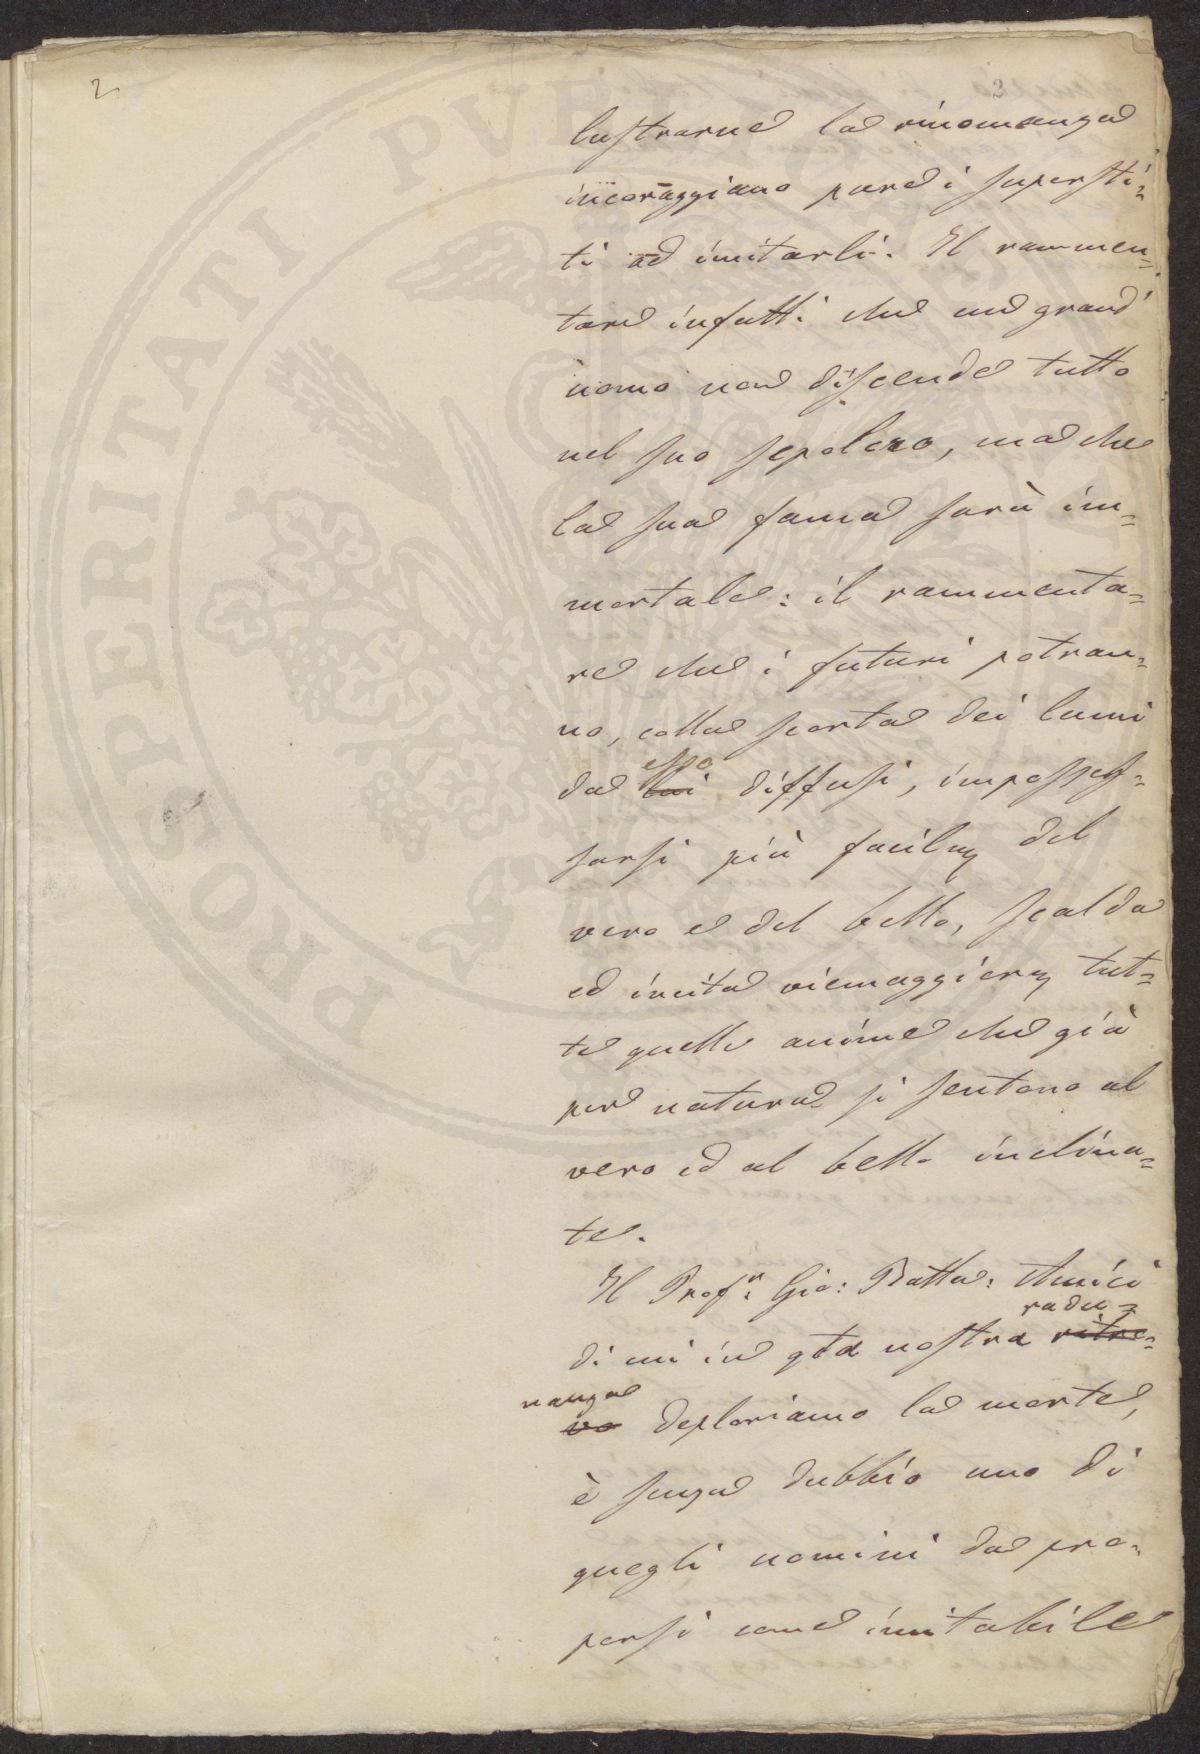 2
2
lustrarne la rinomanza
incoraggiano pure i supersti=
ti ad imitarli. Il rammen=
tare infatti che un grand'
uomo non discende tutto
nel suo sepolcro, ma che
la sua fama sarà im=
mortale: il rammenta=
re che i futuri potran=
no, colla scorta dei lumi
esso
da lui diffusi, imposses=
sarsi più facilm del
vero e del bello, scalda
ed incita viemaggiorm tut=
te quelle anime che già
per natura si sentono al
vero ed al bello inclina=
te.
Il Prof.r Gio: Batta: Amici
radu=
di cui in qta nostra ritro=
nanza
vo deploriamo la morte,
è senza dubbio uno di
quegli uomini da pro=
porsi come imitabile
PROSPERITATI